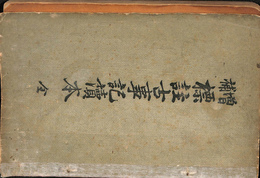 增補
標註古事記讀本 全